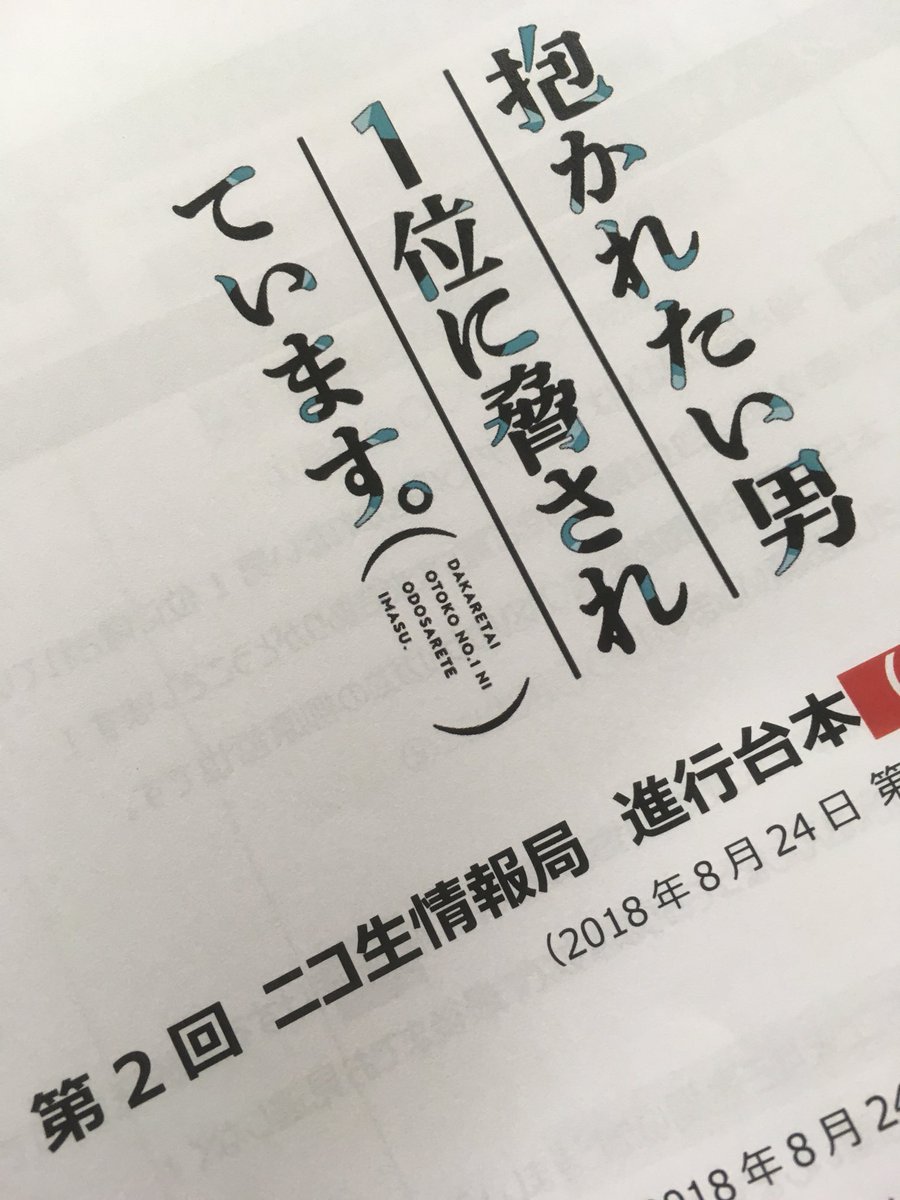 抱かれたい男
1位に脅され
ています。
(DAKARETAI
OTOKO NO.1 NI
ODOSARETE
IMASU.)
第2回 ニコ生情報局 進行台本
(2018年8月24日 第
2018年8月24